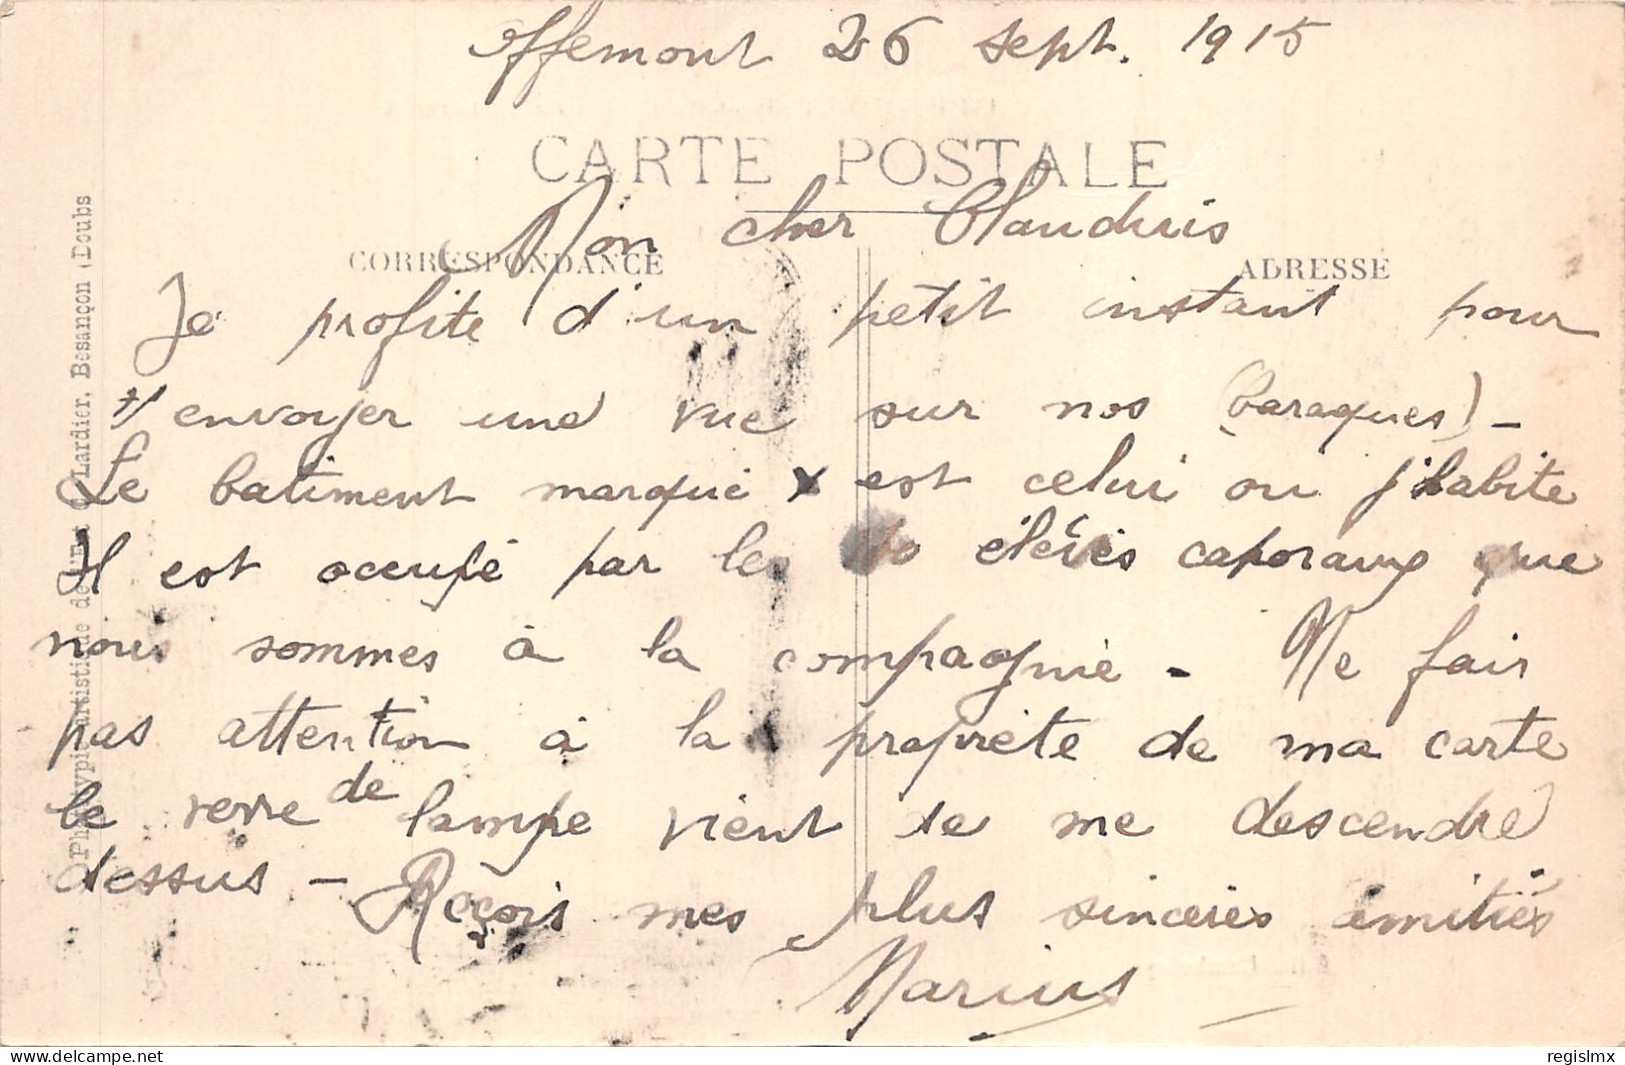 Offemont 26 sept. 1915
CARTE POSTALE
Mon cher Claudius
CORRESPONDANCE
ADRESSE
Je profite d'un petit instant pour
t'envoyer une vue sur nos (baraques) -
Le batiment marqué x est celui ou j'habite
Il est occupé par les élèves caporaux que
nous sommes à la compagnie - Ne fais
pas attention à la propriete de ma carte
le verre de lampe vient de me descendre
dessus - Reçois mes plus sincères amitiés
Marius
Lardier, Besançon (Doubs
delcampe.net
regislmx